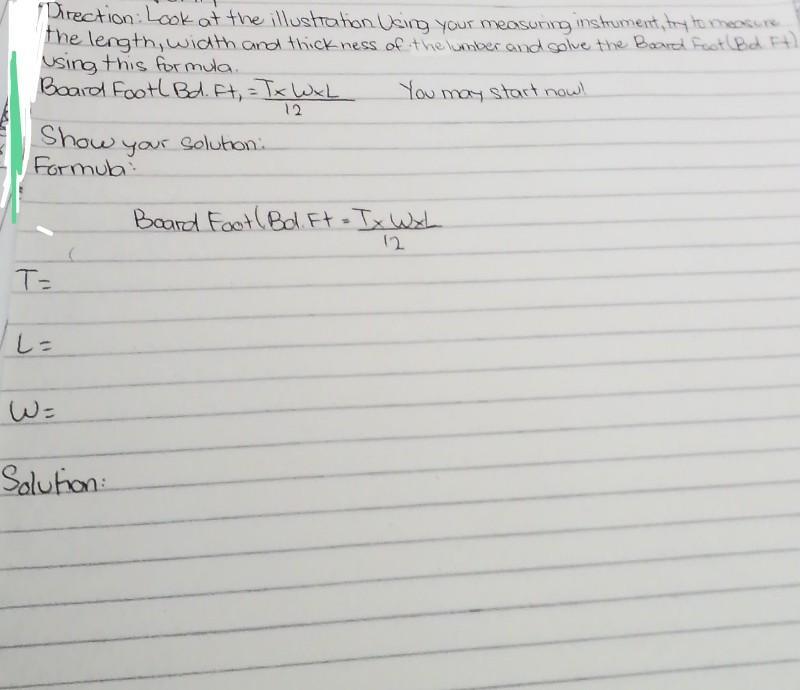 Direction: Look at the illustration. Using your measuring instrument, try to measure
the length, width and thickness of the lumber and solve the Board Foot (Bd. Ft)
using this formula.
Board Foot( Bd. Ft, = TxWxL You may start now!
12
Show your solution:
Formula:
Board Foot (Bd. Ft = TxWxL
12
T=
L=
W=
Solution: